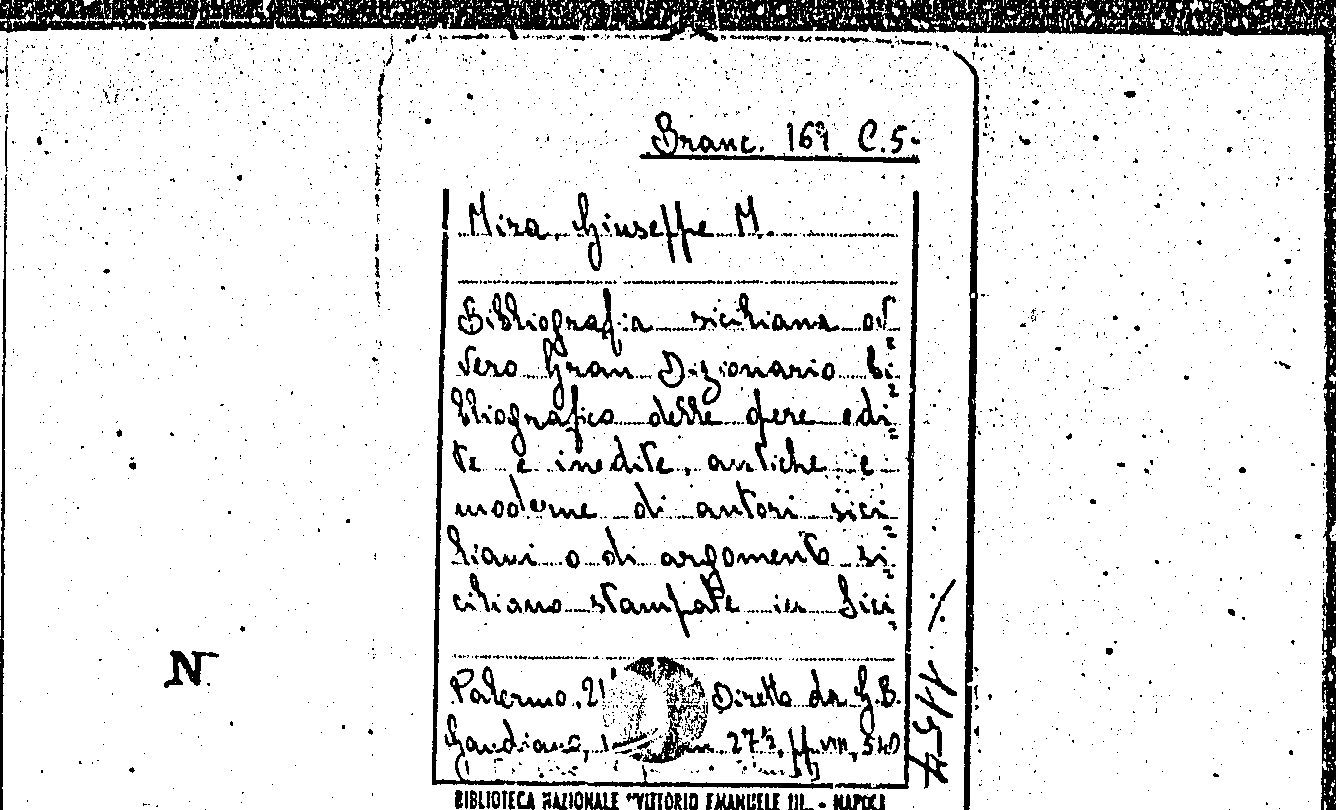 Branc. 169 C.5.
Mira, Giuseppe M.
Bibliografia siciliana ov=
vero Gran Dizionario bi=
bliografico delle opere edi=
te e inedite, antiche e
moderne di autori sici=
liani o di argomento si=
ciliano stampate in Sici=
Palermo, Diretto da G.B.
Gaudiano, 27½, pp. VIII, 540
BIBLIOTECA NAZIONALE "VITTORIO EMANUELE III„ - NAPOLI
N